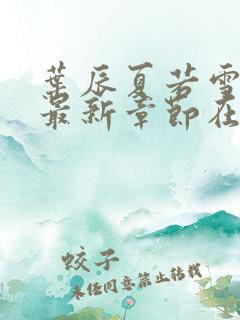 葉辰夏若雪
最新章節在
蛟子
未任同意禁止转载